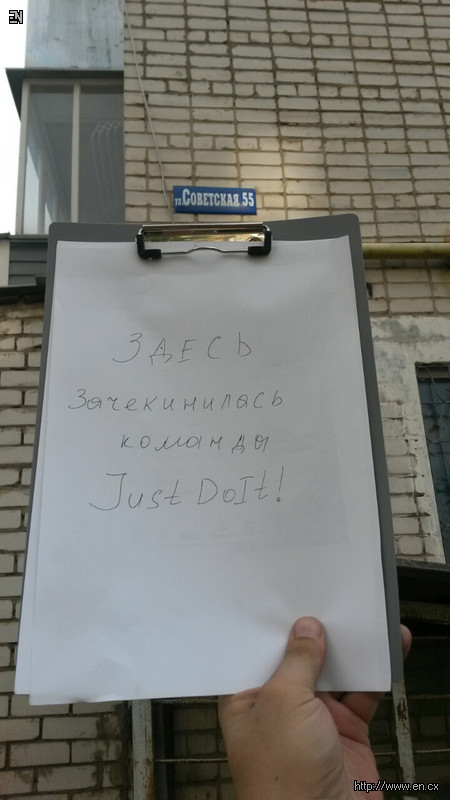 EN
ул.СОВЕТСКАЯ 55
ЗДЕСЬ
Зачекинилась
команды
Just DoIt!
http://www.en.cx